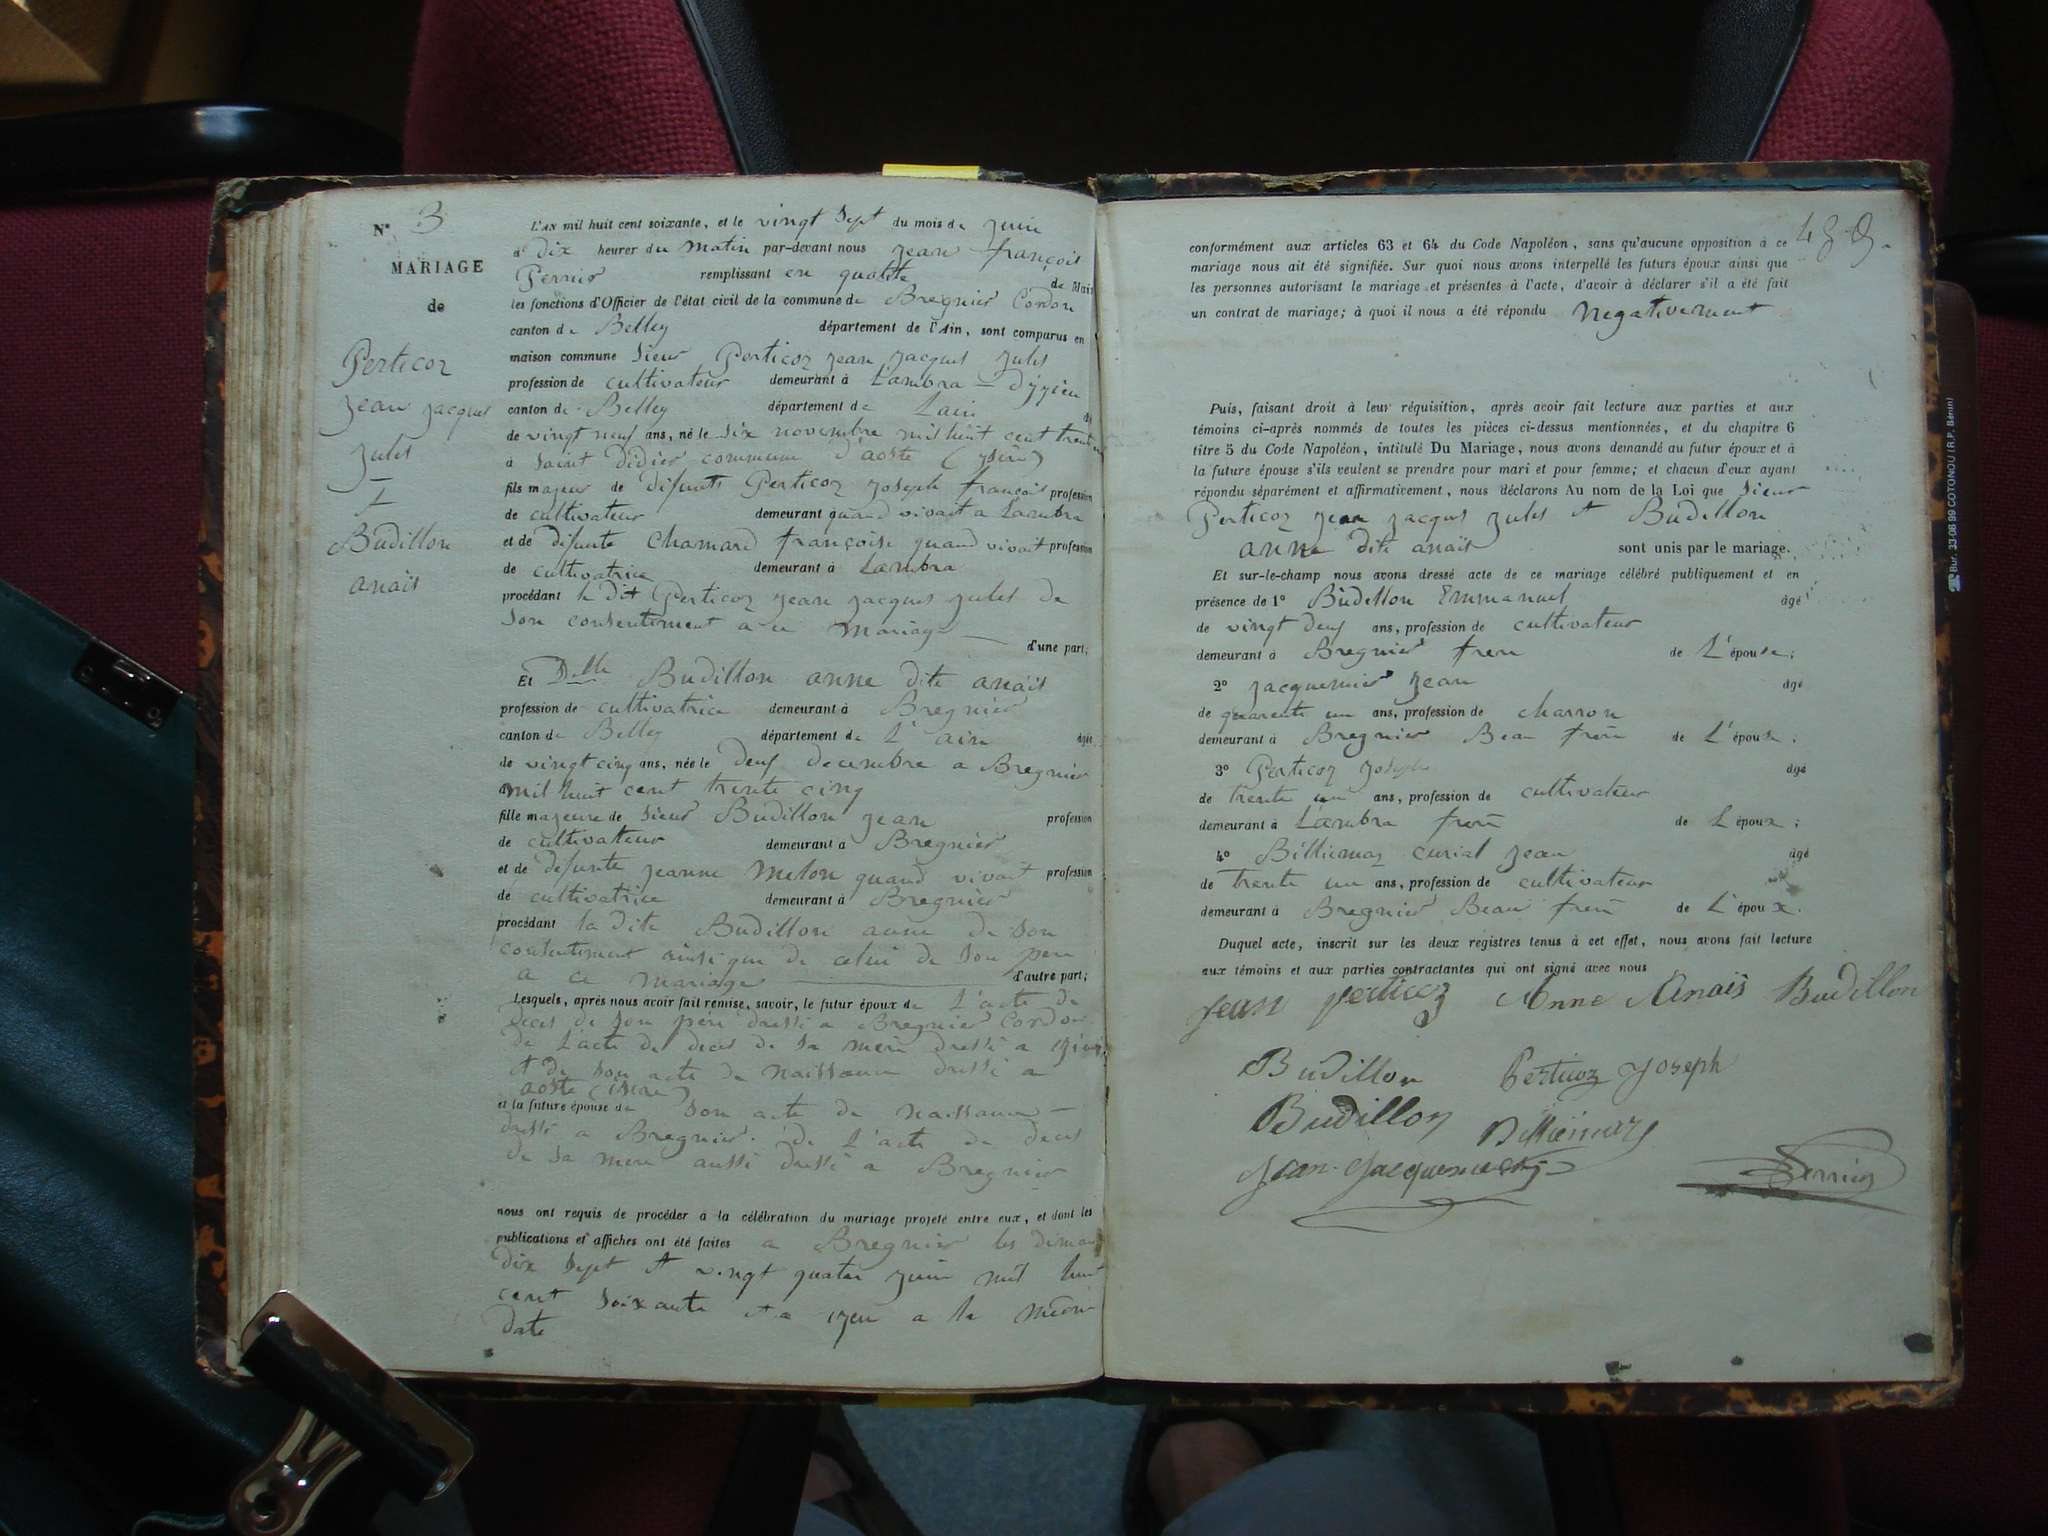 N° 3
MARIAGE
de
Perticoz
Jean Jacques
Jules
et
Budillon
anaïs
L'AN mil huit cent soixante, et le vingt sept du mois de Juin
à dix heures du matin par-devant nous Jean françois
Pernin remplissant en qualité de Maire
les fonctions d'Officier de l'état civil de la commune de Bregnier Cordon
canton de Belley département de l'Ain, sont comparus en
maison commune Sieur Perticoz Jean Jacques Jules
profession de cultivateur demeurant à Lambra D'yzieu
canton de Belley département de Lain
de vingt neuf ans, né le Six novembre mil huit cent trente
à Saint Didier commune d'aoste (isère)
fils majeur de défunts Perticoz Joseph françois profession
de cultivateur demeurant quand vivait a Lambra
et de défunte Chamard françoise quand vivait profession
de cultivatrice demeurant à Lambra
procédant le dit Perticoz Jean Jacques Jules de
Son consentement a ce mariage d'une part;
Et Dlle Budillon anne dite anaïs
profession de cultivatrice demeurant à Bregnier
canton de Belley département de L'ain âgée
de vingt cinq ans, née le deux decembre a Bregnier
mil huit cent trente cinq
fille majeure de Sieur Budillon Jean profession
de cultivateur demeurant à Bregnier
et de défunte Jeanne Melon quand vivait profession
de cultivatrice demeurant à Bregnier
procédant la dite Budillon anne de Son
consentement ainsi que de celui de Son père
a ce mariage d'autre part;
Lesquels, après nous avoir fait remise, savoir, le futur époux de L'acte de
Deces de Son père dressé a Bregnier Cordon
De L'acte de deces de Sa mère dressé a izieu
et de Son acte de naissance dressé a
aoste (isère)
et la future épouse de Son acte de naissance
dressé a Bregnier. de L'acte de deces
de Sa mère aussi dressé a Bregnier
nous ont requis de procéder à la célébration du mariage projeté entre eux, et dont les
publications et affiches ont été faites a Bregnier les diman
dix Sept et vingt quatre Juin mil huit
cent Soixante et a izieu a la même
date
conformément aux articles 63 et 64 du Code Napoléon, sans qu'aucune opposition à ce
mariage nous ait été signifiée. Sur quoi nous avons interpellé les futurs époux ainsi que
les personnes autorisant le mariage et présentes à l'acte, d'avoir à déclarer s'il a été fait
un contrat de mariage; à quoi il nous a été répondu negativement
Puis, faisant droit à leur réquisition, après avoir fait lecture aux parties et aux
témoins ci-après nommés de toutes les pièces ci-dessus mentionnées, et du chapitre 6
titre 5 du Code Napoléon, intitulé Du Mariage, nous avons demandé au futur époux et à
la future épouse s'ils veulent se prendre pour mari et pour femme; et chacun d'eux ayant
répondu séparément et affirmativement, nous déclarons Au nom de la Loi que Sieur
Perticoz Jean Jacques Jules et Budillon
anne dite anaïs sont unis par le mariage.
Et sur-le-champ nous avons dressé acte de ce mariage célébré publiquement et en
présence de 1° Budillon Emmanuel âgé
de vingt deux ans, profession de cultivateur
demeurant à Bregnier frère de L'épouse;
2° Jacquemier Jean âgé
de quarente un ans, profession de charron
demeurant à Bregnier Beau frère de L'épouse;
3° Perticoz Joseph âgé
de trente un ans, profession de cultivateur
demeurant à Lambra frère de L'époux;
4° Billiemaz curial Jean âgé
de trente un ans, profession de cultivateur
demeurant à Bregnier Beau frère de L'époux.
Duquel acte, inscrit sur les deux régistres tenus à cet effet, nous avons fait lecture
aux témoins et aux parties contractantes qui ont signé avec nous
Jean perticoz Anne Anaïs Budillon
Budillon Perticoz Joseph
Budillon Billiemaz
Jean Jacquemier Pernin